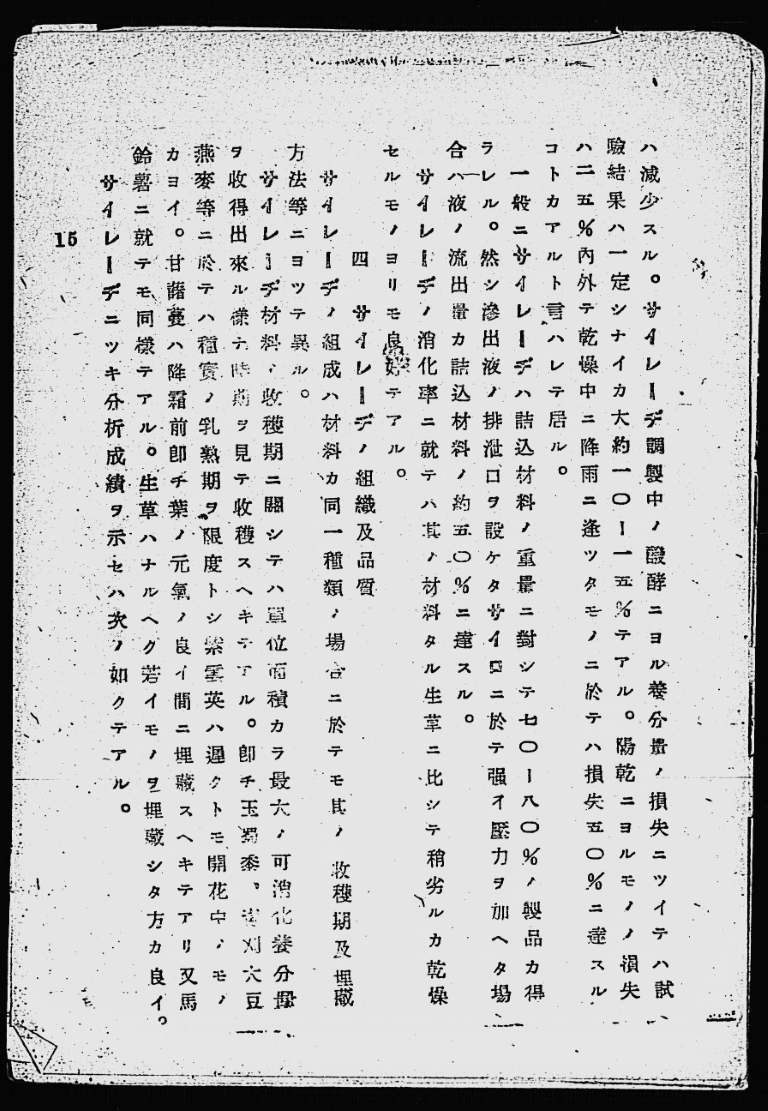 ハ減少スル。サイレーヂ調製中ノ醱酵ニヨル養分量ノ損失ニツイテハ試
驗結果ハ一定シナイカ大約一〇ー一五%テアル。陽乾ニヨルモノノ損失
ハ二五%內外テ乾燥中ニ降雨ニ逢ツタモノニ於テハ損失五〇%ニ達スル
コトカアルト言ハレテ居ル。
一般ニサイレーヂハ詰込材料ノ重量ニ對シテ七〇ー八〇%ノ製品カ得
ラレル。然シ滲出液ノ排泄口ヲ設ケタサイロニ於テ强イ壓力ヲ加ヘタ場
合ハ液ノ流出量カ詰込材料ノ約五〇%ニ達スル。
サイレーヂノ消化率ニ就テハ其ノ材料タル生草ニ比シテ稍劣ルカ乾燥
セルモノヨリモ良好テアル。
四 サイレーヂノ組織及品質
サイレーヂノ組成ハ材料カ同一種類ノ場合ニ於テモ其ノ收穫期及埋藏
方法等ニヨツテ異ル。
サイレーヂ材料ノ收穫期ニ關シテハ單位面積カラ最大ノ可消化養分量
ヲ收得出來ル樣ナ時期ヲ見テ收穫スヘキテアル。卽チ玉蜀黍、靑刈大豆
燕麥等ニ於テハ種實ノ乳熟期ヲ限度トシ紫雲英ハ遲クトモ開花中ノモノ
カヨイ。甘藷蔓ハ降霜前卽チ葉ノ元氣ノ良イ間ニ埋藏スヘキテアリ又馬
鈴薯ニ就テモ同樣テアル。生草ハナルヘク若イモノヲ埋藏シタ方カ良イ。
サイレーヂニツキ分析成績ヲ示セハ次ノ如クテアル。
15